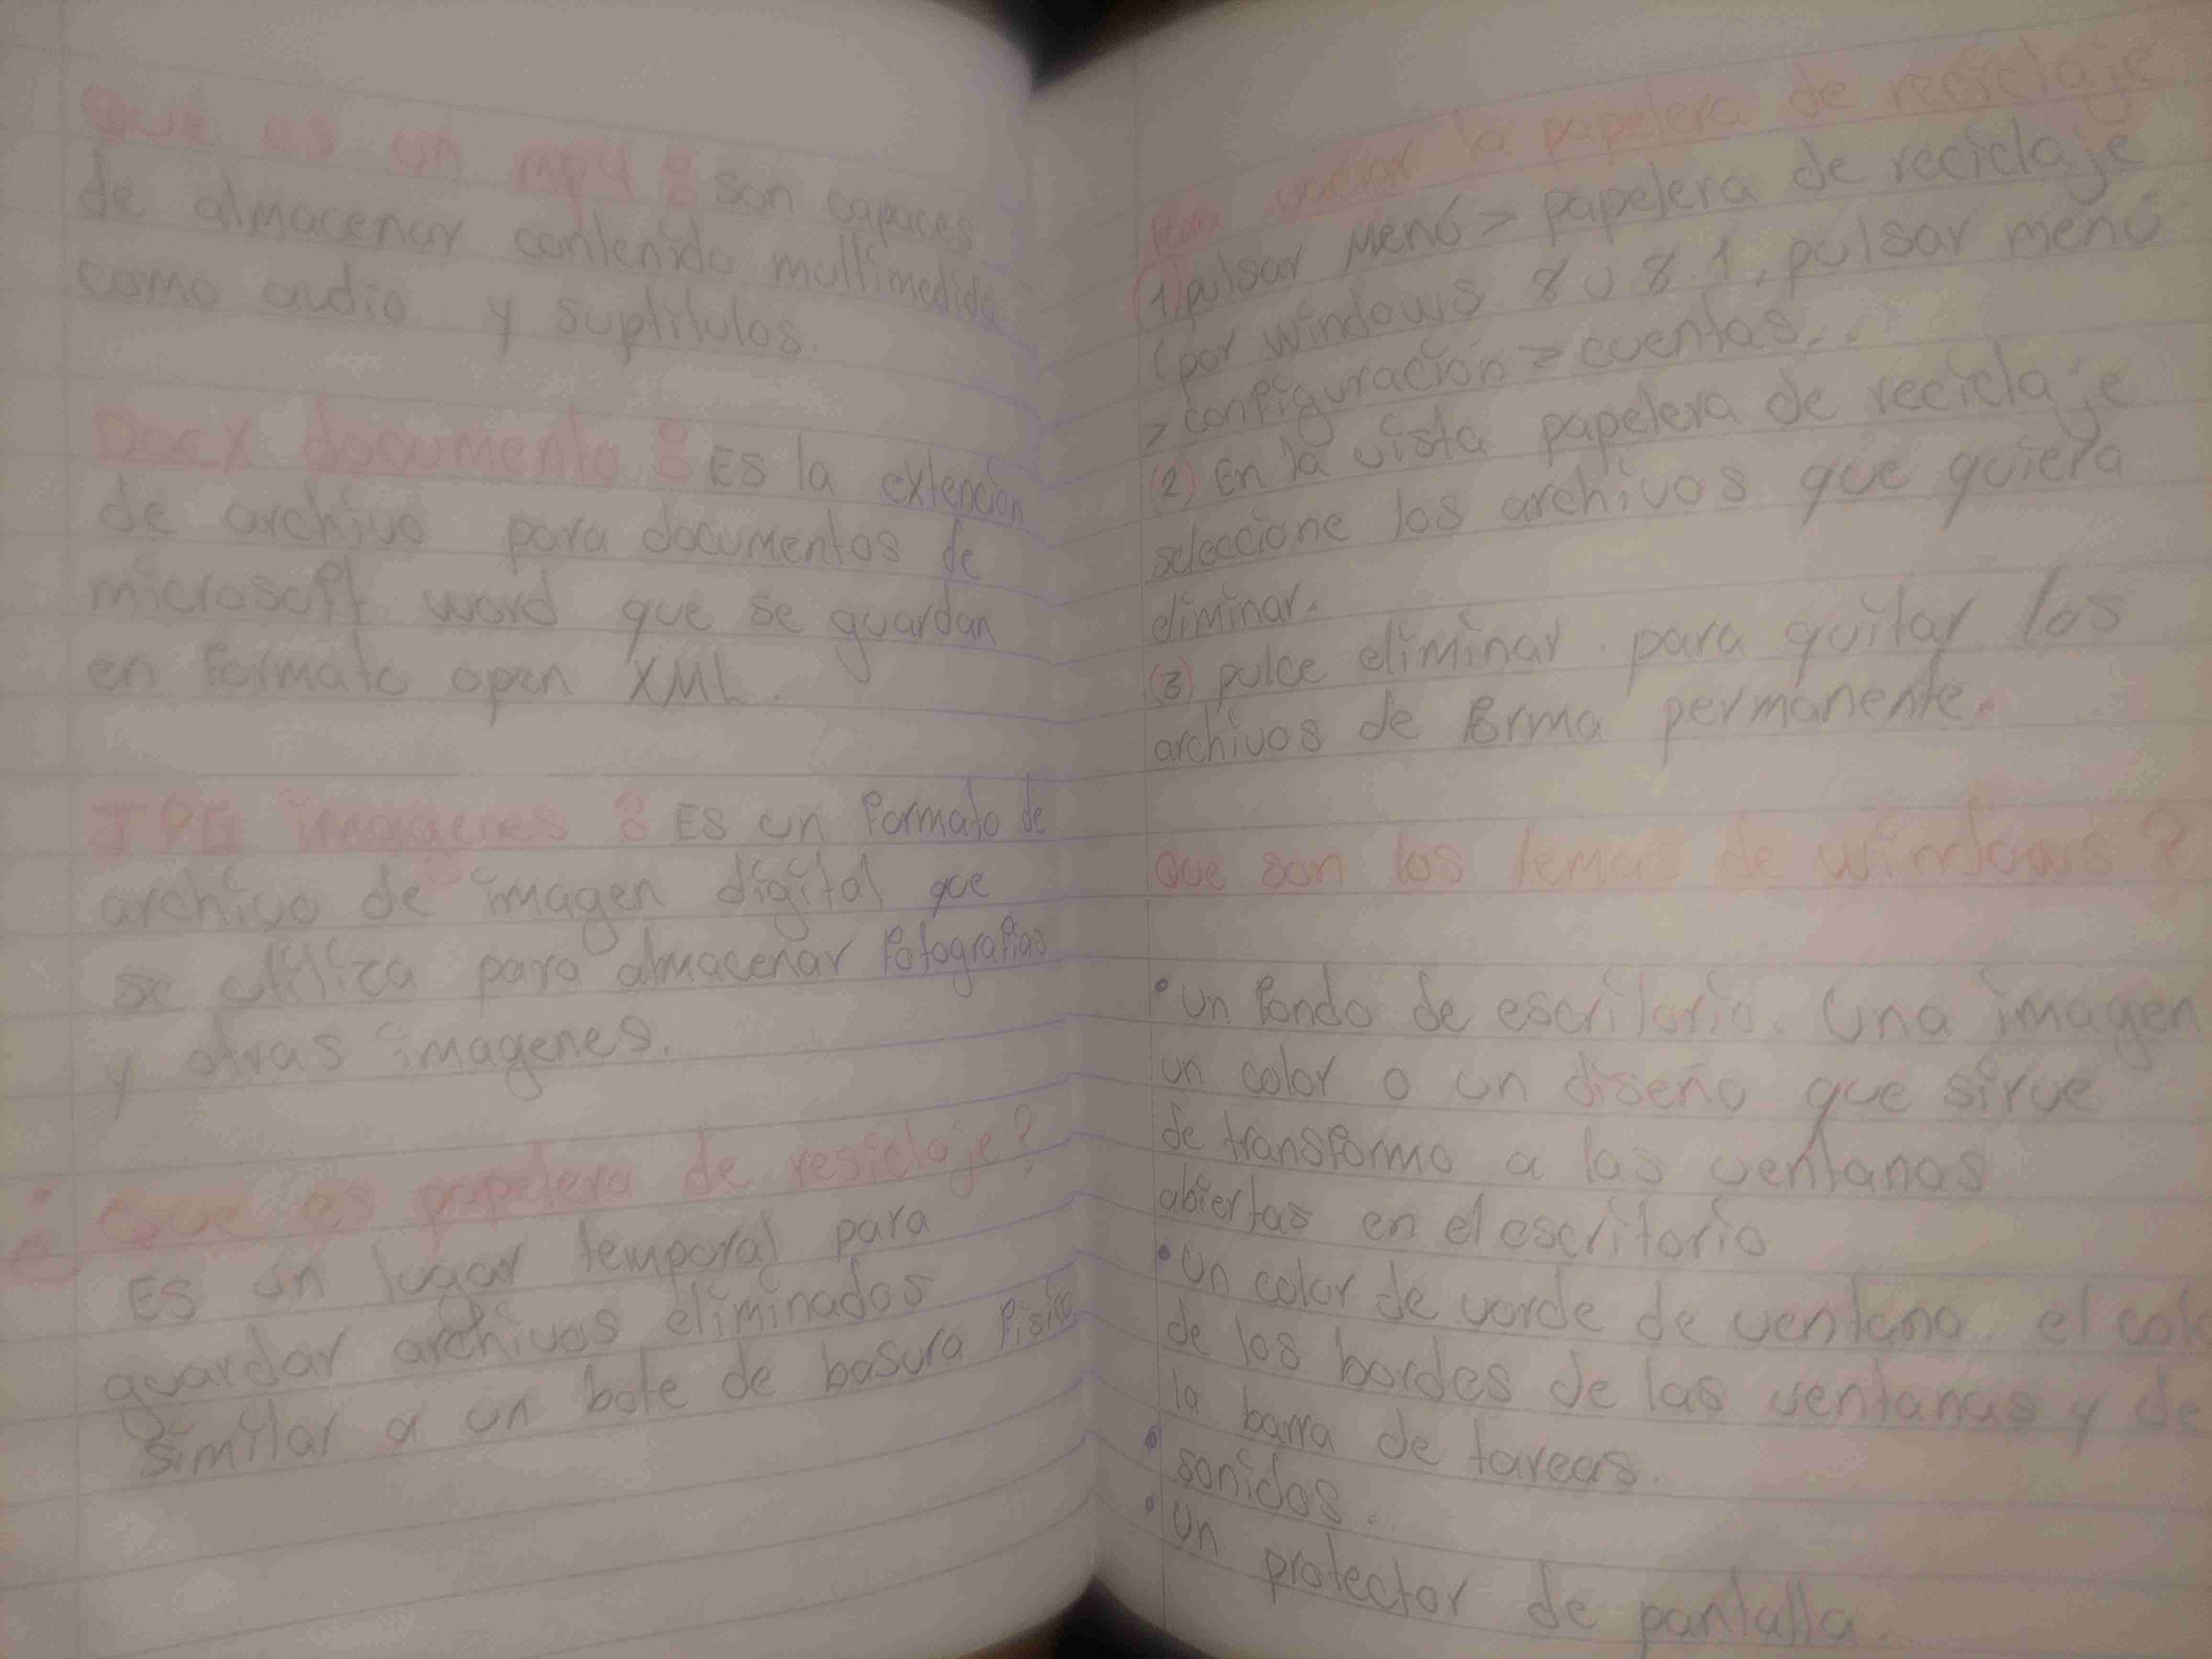 Que es un mp4 : son capaces
de almacenar contenido multimedida
como audio y suptitulos.
Docx documento : Es la extencion
de archivo para documentos de
microsoft word que se guardan
en formato open XML.
JPG imagenes : Es un formato de
archivo de imagen digital que
se utiliza para almacenar fotografias
y otras imagenes.
¿Que es papelera de resiclaje?
Es un lugar temporal para
guardar archivos eliminados
similar a un bote de basura fisico
Para vaciar la papelera de reciclaje
(1) pulsar Menú > papelera de reciclaje
(por windows 8 u 8.1, pulsar menú
> configuración > cuentas...
(2) En la vista papelera de reciclaje
seleccione los archivos que quiera
eliminar.
(3) pulce eliminar. para quitar los
archivos de forma permanente.
que son los temas de windows?
• un fondo de escritorio. Una imagen
un color o un diseño que sirve
de transformo a las ventanas
abiertas en el escritorio
• Un color de vorde de ventana. el colo
de los bordes de las ventanas y de
la barra de tareas.
• sonidos...
• Un protector de pantalla.